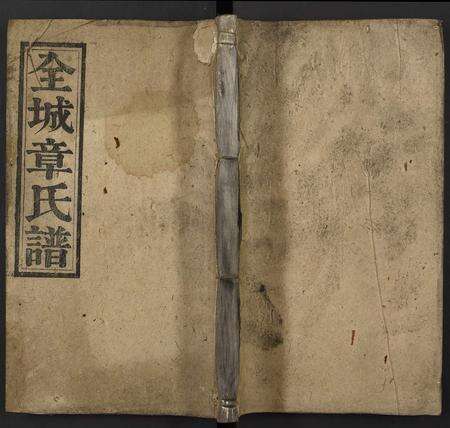 全城章氏譜